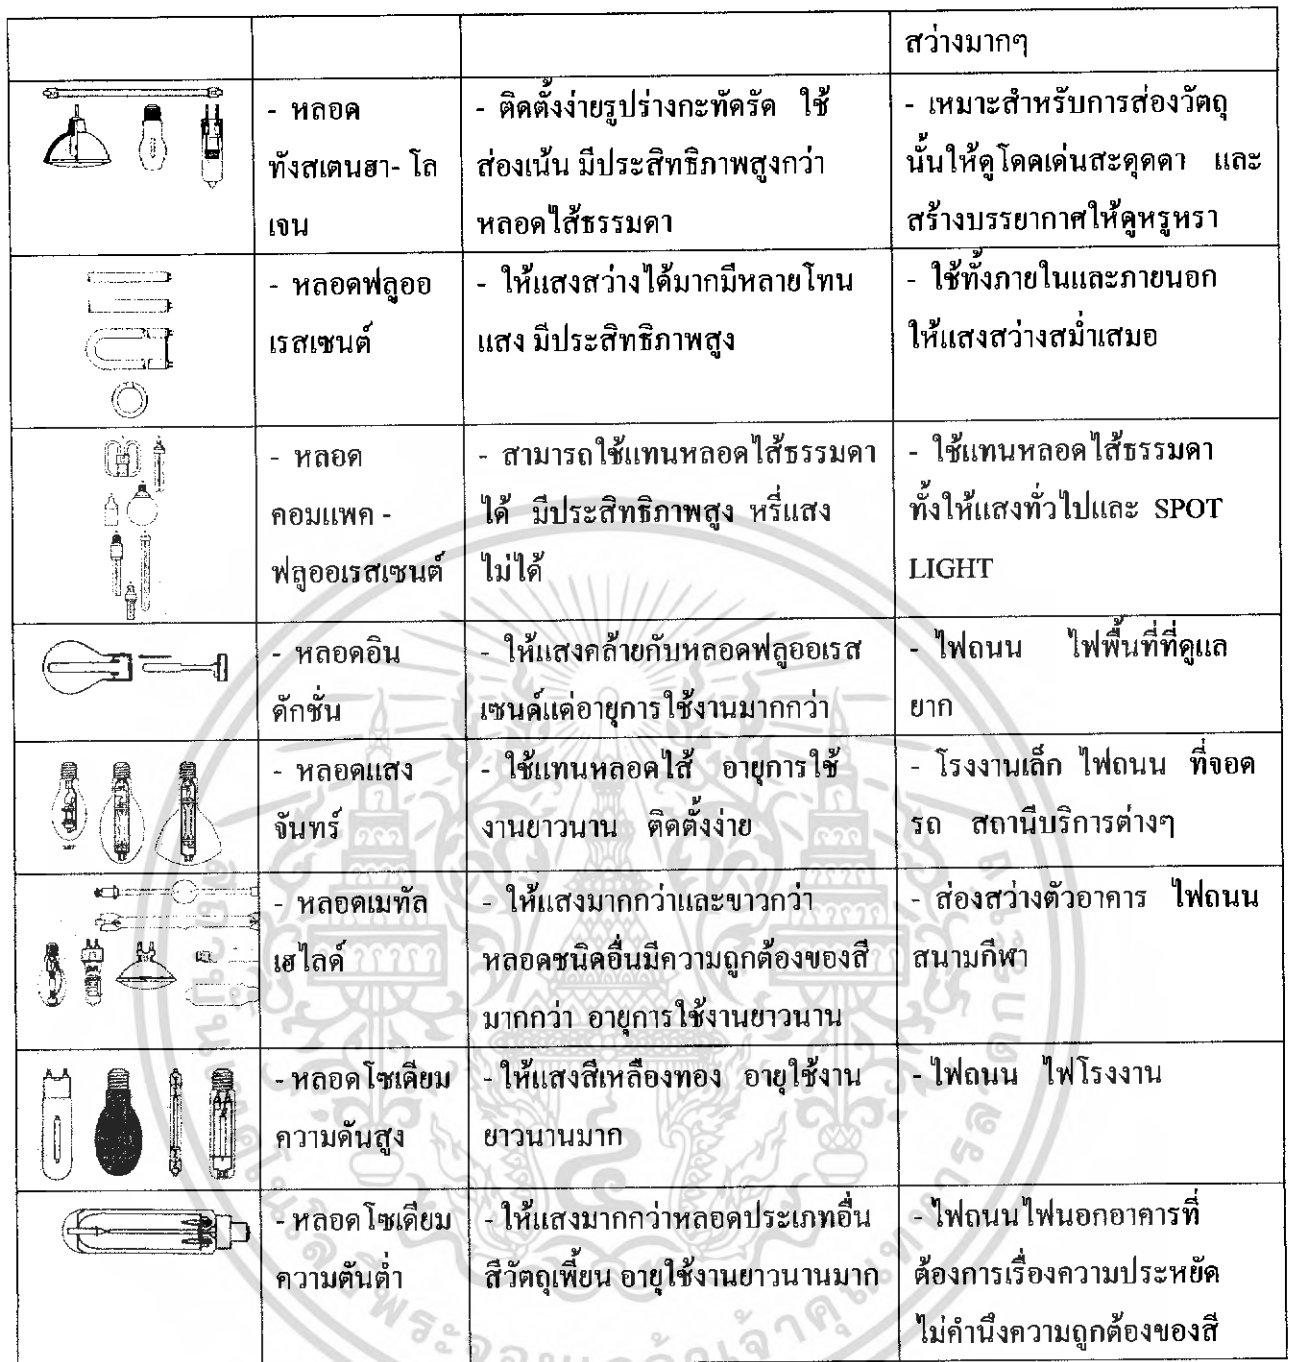 สว่างมากๆ
- หลอด
ทังสเตนฮา- โล
เจน
- ติดตั้งง่ายรูปร่างกะทัดรัด ใช้
ส่องเน้น มีประสิทธิภาพสูงกว่า
หลอดไส้ธรรมดา
- เหมาะสำหรับการส่องวัตถุ
นั้นให้ดูโดดเด่นสะดุดตา และ
สร้างบรรยากาศให้ดูหรูหรา
- หลอดฟลูออ
เรสเซนต์
- ให้แสงสว่างได้มากมีหลายโทน
แสง มีประสิทธิภาพสูง
- ใช้ทั้งภายในและภายนอก
ให้แสงสว่างสม่ำเสมอ
- หลอด
คอมแพค -
ฟลูออเรสเซนต์
- สามารถใช้แทนหลอดไส้ธรรมดา
ได้ มีประสิทธิภาพสูง หรี่แสง
ไม่ได้
- ใช้แทนหลอดไส้ธรรมดา
ทั้งให้แสงทั่วไปและ SPOT
LIGHT
- หลอดอิน
ดักชั่น
- ให้แสงคล้ายกับหลอดฟลูออเรส
เซนต์แต่อายุการใช้งานมากกว่า
- ไฟถนน ไฟพื้นที่ที่ดูแล
ยาก
- หลอดแสง
จันทร์
- ใช้แทนหลอดไส้ อายุการใช้
งานยาวนาน ติดตั้งง่าย
- โรงงานเล็ก ไฟถนน ที่จอด
รถ สถานีบริการต่างๆ
- หลอดเมทัล
เฮไลด์
- ให้แสงมากกว่าและขาวกว่า
หลอดชนิดอื่นมีความถูกต้องของสี
มากกว่า อายุการใช้งานยาวนาน
- ส่องสว่างตัวอาคาร ไฟถนน
สนามกีฬา
- หลอดโซเดียม
ความดันสูง
- ให้แสงสีเหลืองทอง อายุใช้งาน
ยาวนานมาก
- ไฟถนน ไฟโรงงาน
- หลอดโซเดียม
ความดันต่ำ
- ให้แสงมากกว่าหลอดประเภทอื่น
สีวัตถุเพี้ยน อายุใช้งานยาวนานมาก
- ไฟถนนไฟนอกอาคารที่
ต้องการเรื่องความประหยัด
ไม่คำนึงความถูกต้องของสี